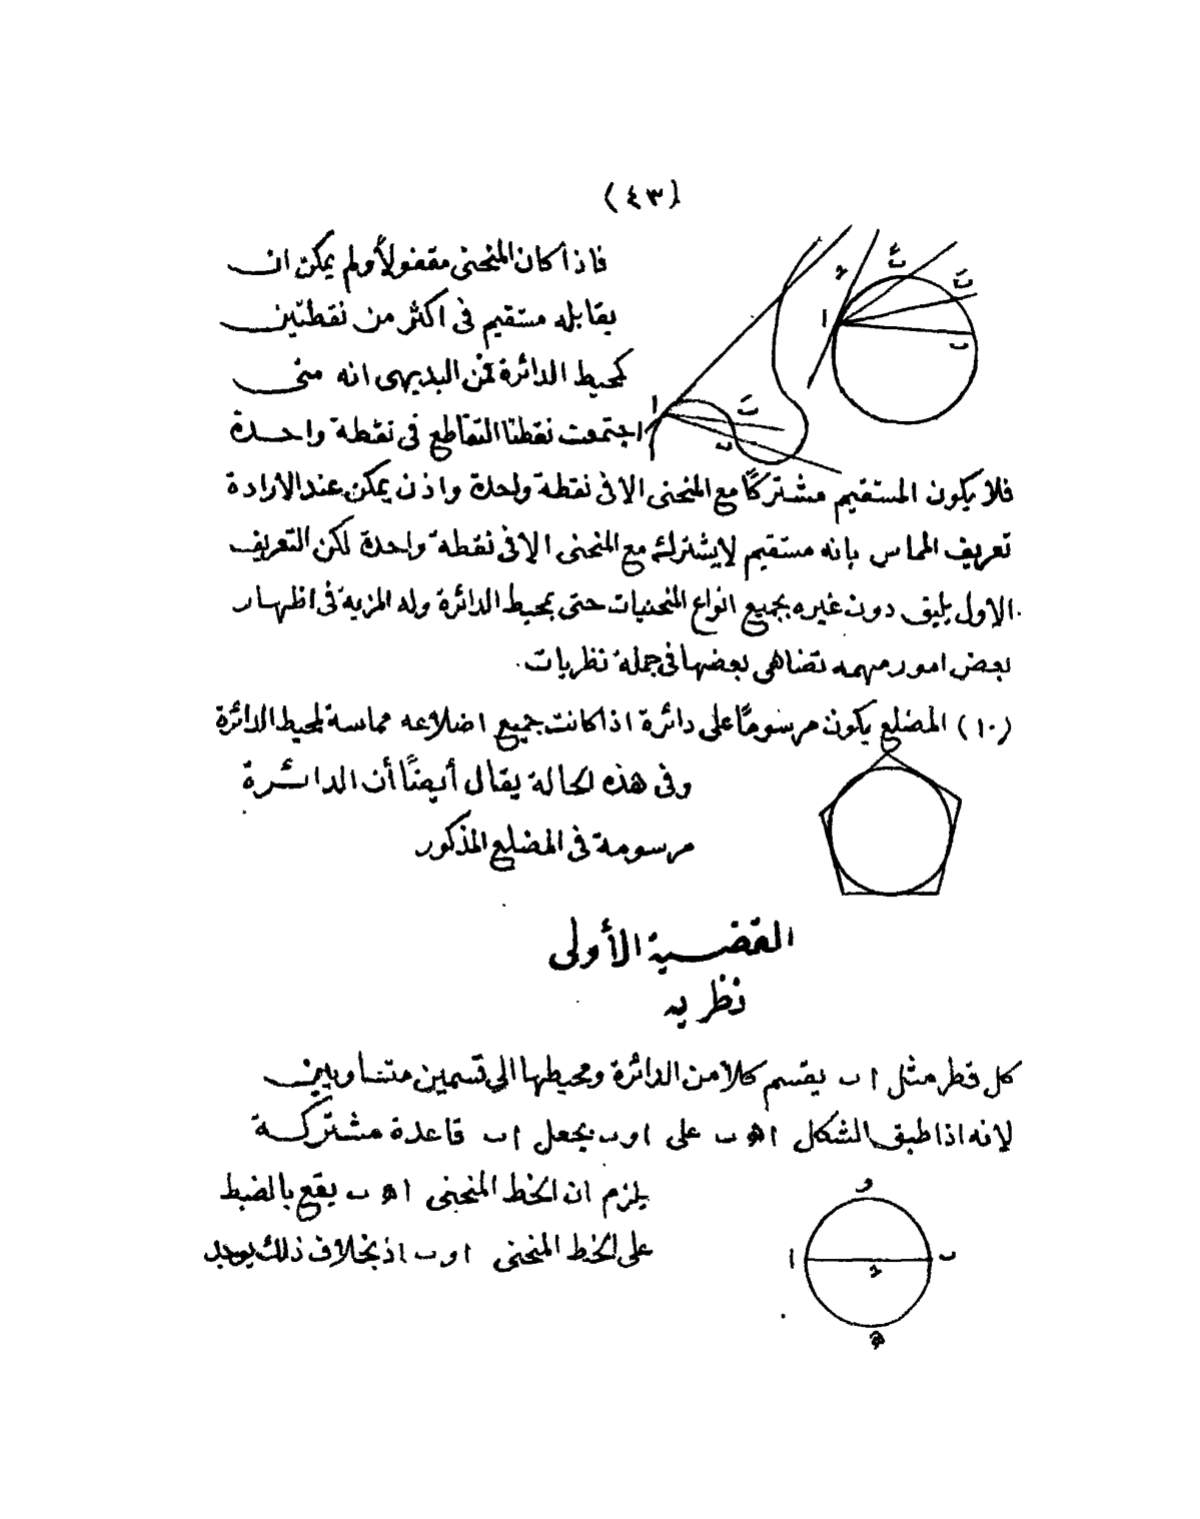 (٤٣)
فاذا كان المنحنى مقفولاً ولم يمكن ان
يقابله مستقيم فى اكثر من نقطتين
كمحيط الدائرة فمن البديهى انه متى
اجتمعت نقطتا التقاطع فى نقطة واحدة
فلا يكون المستقيم مشتركًا مع المنحنى الا فى نقطة واحدة واذن يمكن عند الارادة
تعريف المماس بانه مستقيم لايشترك مع المنحنى الا فى نقطة واحدة لكن التعريف
الاول يليق دون غيره بجميع انواع المنحنيات حتى بمحيط الدائرة وله المزية فى اظهار
بعض امور مهمه تضاهى بعضها فى جملة نظريات.
(١٠) المضلع يكون مرسومًا على دائرة اذا كانت جميع اضلاعه مماسة لمحيط الدائرة
وفى هذه الحالة يقال أيضًا أن الدائرة
مرسومة فى المضلع المذكور
القضية الأولى
نظريه
كل قطر مثل ا ب يقسم كلا من الدائرة ومحيطها الى قسمين متساويين
لانه اذا طبق الشكل ا ه ب على ا و ب بجعل ا ب قاعدة مشتركة
يلزم ان الخط المنحنى ا ه ب يقع بالضبط
على الخط المنحنى ا و ب اذ بخلاف ذلك يوجد